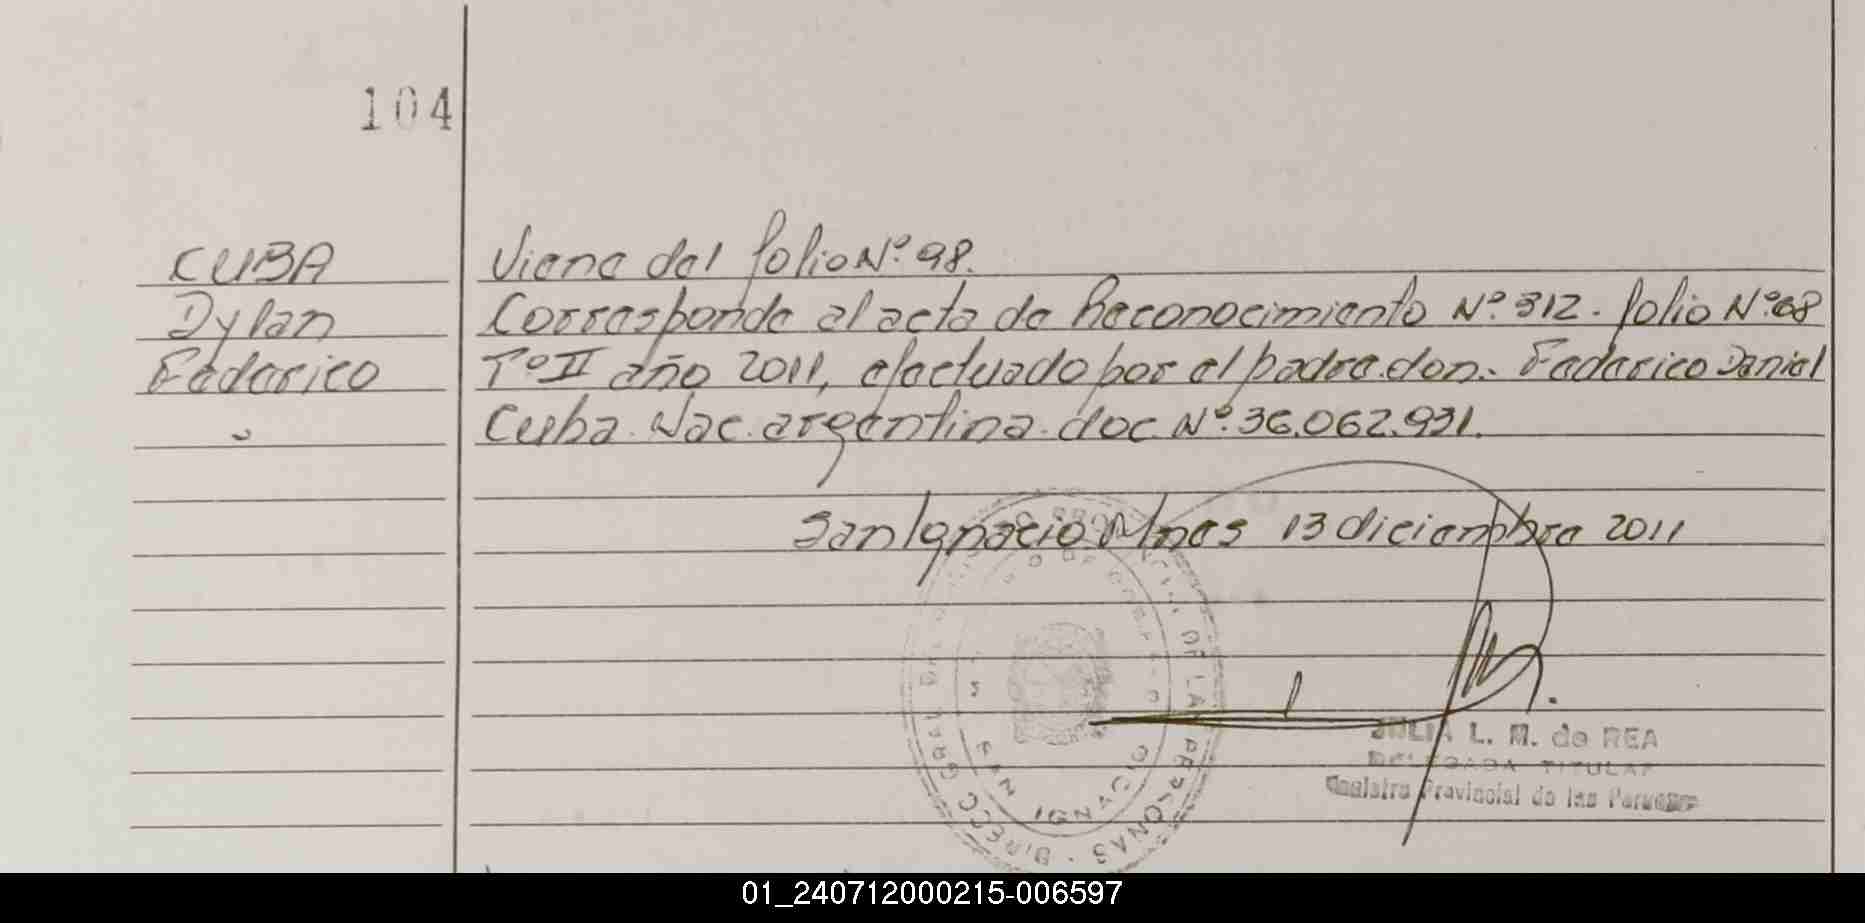 104
CUBA
Dylan
Federico
Viene del folio Nº 98.
Corresponde al acta de Reconocimiento Nº 312. folio Nº 68
Tº II año 2011, efectuado por el padre don. Federico Daniel
Cuba. Nac. argentina. doc. Nº 36.062.931.
San Ignacio Mnes 13 diciembre 2011
JULIA L. M. de REA
DELEGADA TITULAR
Registro Provincial de las Personas
DE LAS PERSONAS - DIRECC GRAL DEL
SAN IGNACIO
01_240712000215-006597